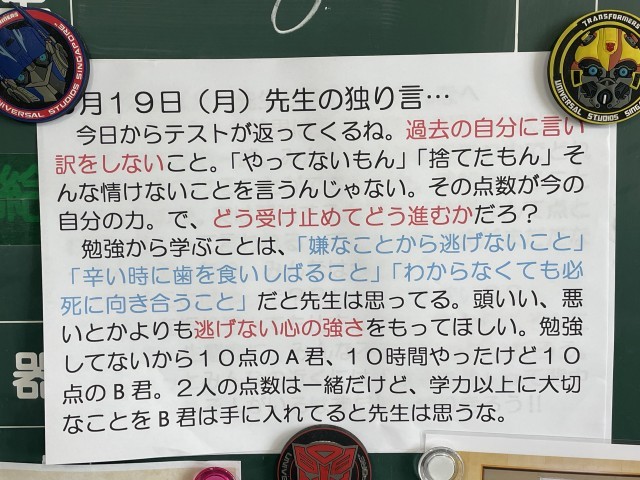 月１９日（月）先生の独り言…
今日からテストが返ってくるね。過去の自分に言い
訳をしないこと。「やってないもん」「捨てたもん」そ
んな情けないことを言うんじゃない。その点数が今の
自分の力。で、どう受け止めてどう進むかだろ？
勉強から学ぶことは、「嫌なことから逃げないこと」
「辛い時に歯を食いしばること」「わからなくても必
死に向き合うこと」だと先生は思ってる。頭いい、悪
いとかよりも逃げない心の強さをもってほしい。勉強
してないから１０点のＡ君、１０時間やったけど１０
点のＢ君。２人の点数は一緒だけど、学力以上に大切
なことをＢ君は手に入れてると先生は思うな。
UNIVERSAL STUDIOS SINGAPORE
TRANSFORMERS
UNIVERSAL STUDIOS SING